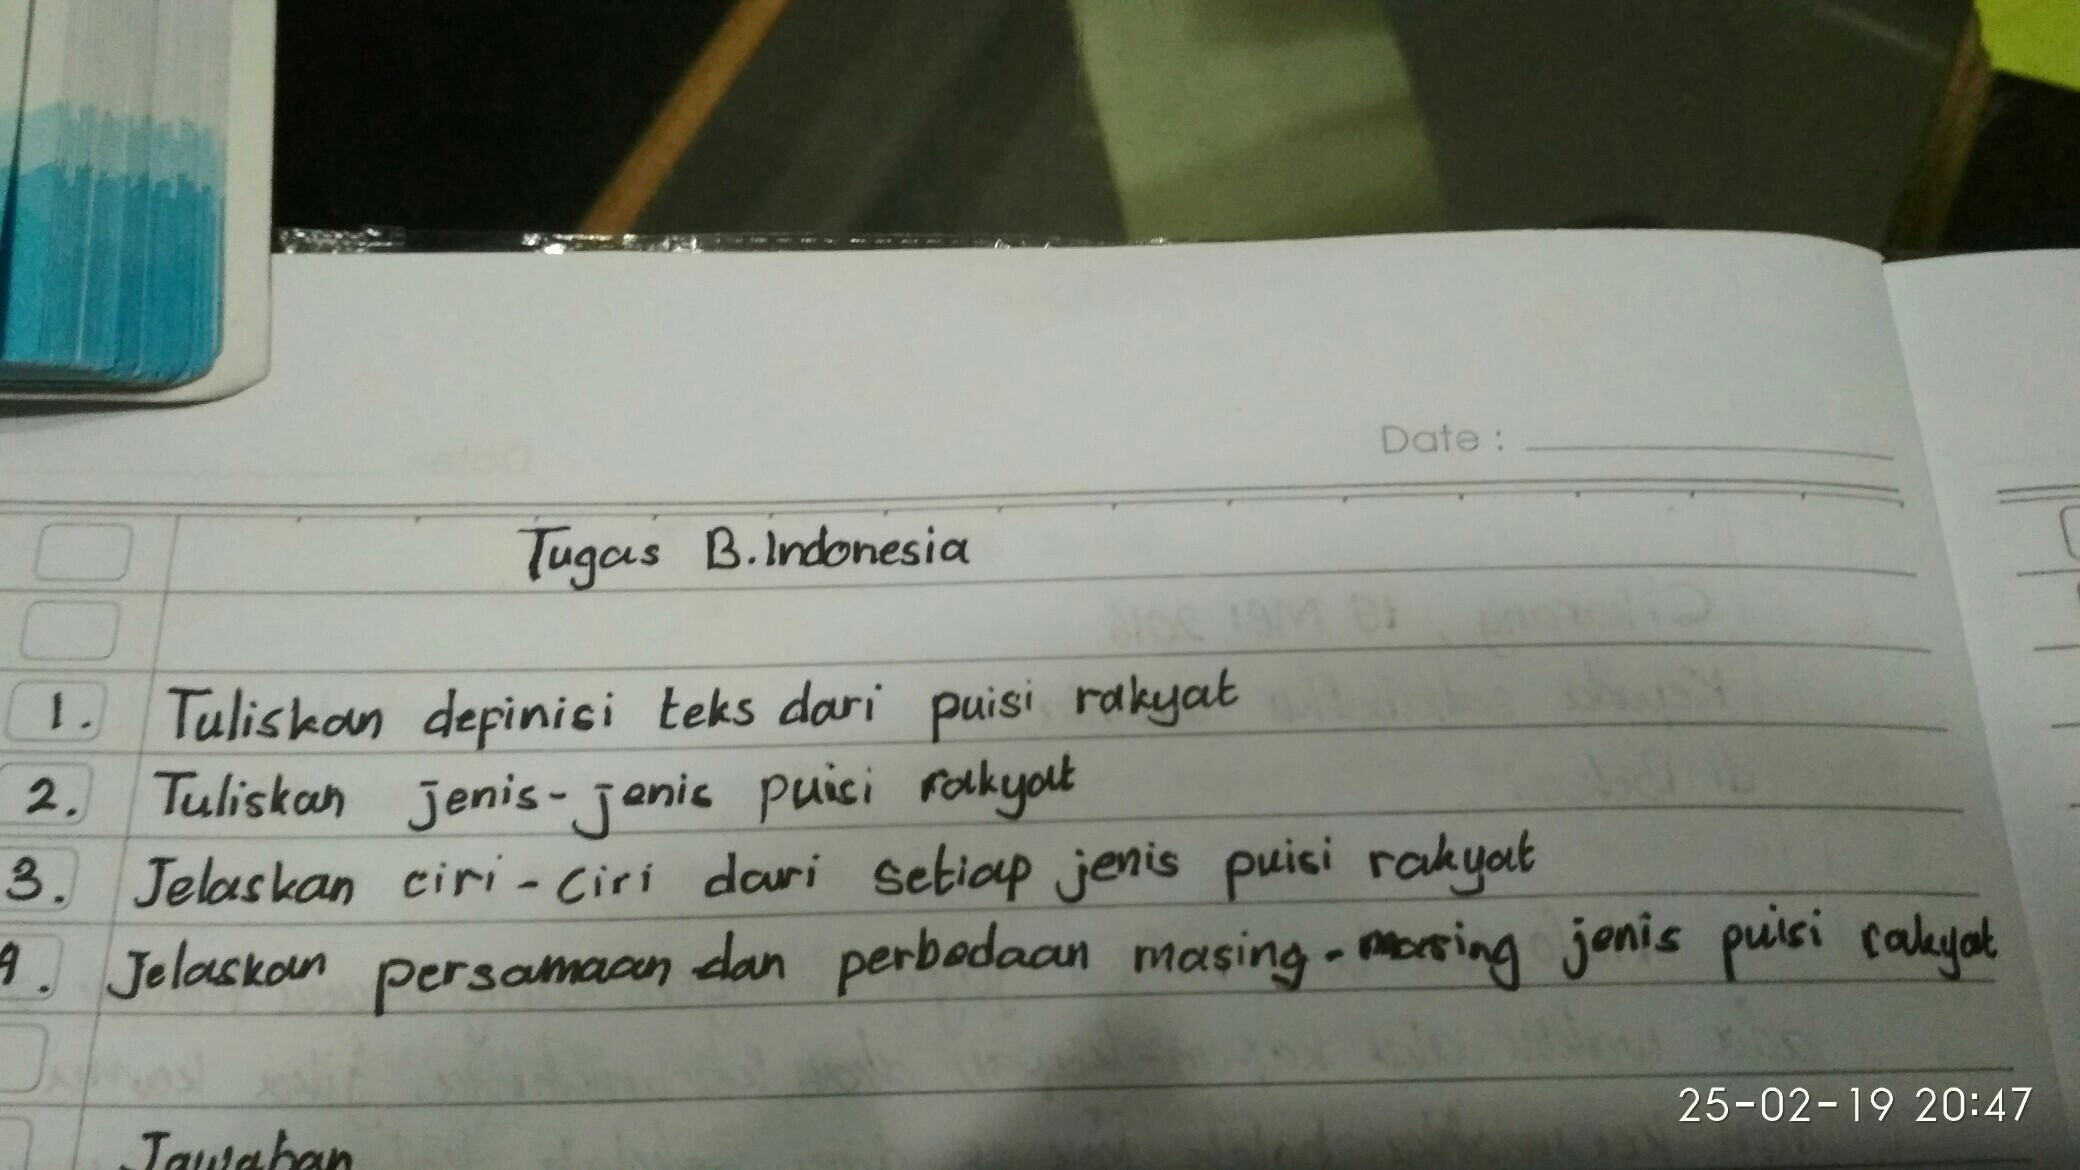 Date :
Tugas B.Indonesia
1. Tuliskan depinisi teks dari puisi rakyat
2. Tuliskan jenis-jenis puisi rakyat
3. Jelaskan ciri-ciri dari setiap jenis puisi rakyat
4. Jelaskan persamaan dan perbedaan masing-masing jenis puisi rakyat
Jawaban
25-02-19 20:47